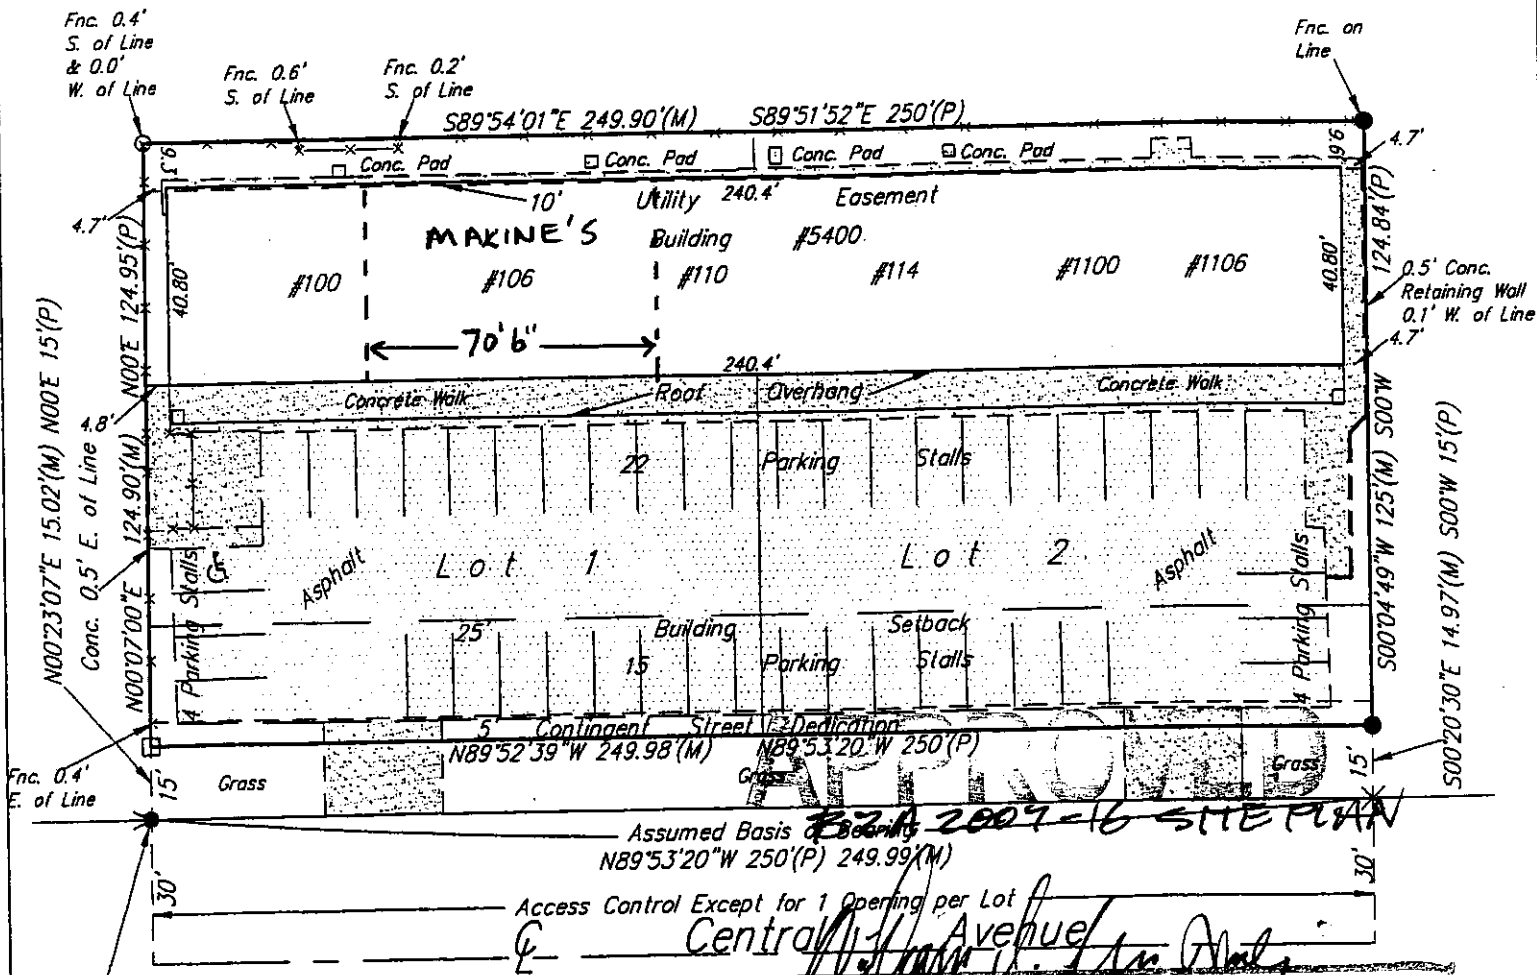 Fnc. 0.4'
S. of Line
& 0.0'
W. of Line
Fnc. 0.6'
S. of Line
Fnc. 0.2'
S. of Line
Fnc. on
Line
S89°54'01"E 249.90'(M)
S89°51'52"E 250'(P)
Conc. Pad
Conc. Pad
Conc. Pad
Conc. Pad
4.7'
4.7'
10'
Utility
240.4'
Easement
MAKINE'S
Building
#5400
#100
#106
#110
#114
#1100
#1106
40.80'
40.80'
0.5' Conc.
Retaining Wall
0.1' W. of Line
4.7'
70'6"
240.4'
Concrete Walk
Roof
Overhang
Concrete Walk
4.8'
N00°E 124.95'(P)
N00°07'00"E 124.90'(M)
N00°23'07"E 15.02'(M) N00°E 15'(P)
Conc. 0.5' E. of Line
124.84'(P)
S00°04'49"W 125'(M) S00°W
S00°20'30"E 14.97'(M) S00°W 15'(P)
22
Parking
Stalls
Asphalt
Lot 1
Lot 2
Asphalt
4 Parking Stalls
4 Parking Stalls
25'
Building
Setback
15
Parking
Stalls
5' Contingent Street Dedication
N89°52'39"W 249.98'(M)
N89°53'20"W 250'(P)
Fnc. 0.4'
E. of Line
15'
Grass
Grass
Grass
15'
APPROVED
BZA 2007-16 SITE PLAN
Assumed Basis of Bearing
N89°53'20"W 250'(P) 249.99'(M)
30'
30'
Access Control Except for 1 Opening per Lot
Central Avenue